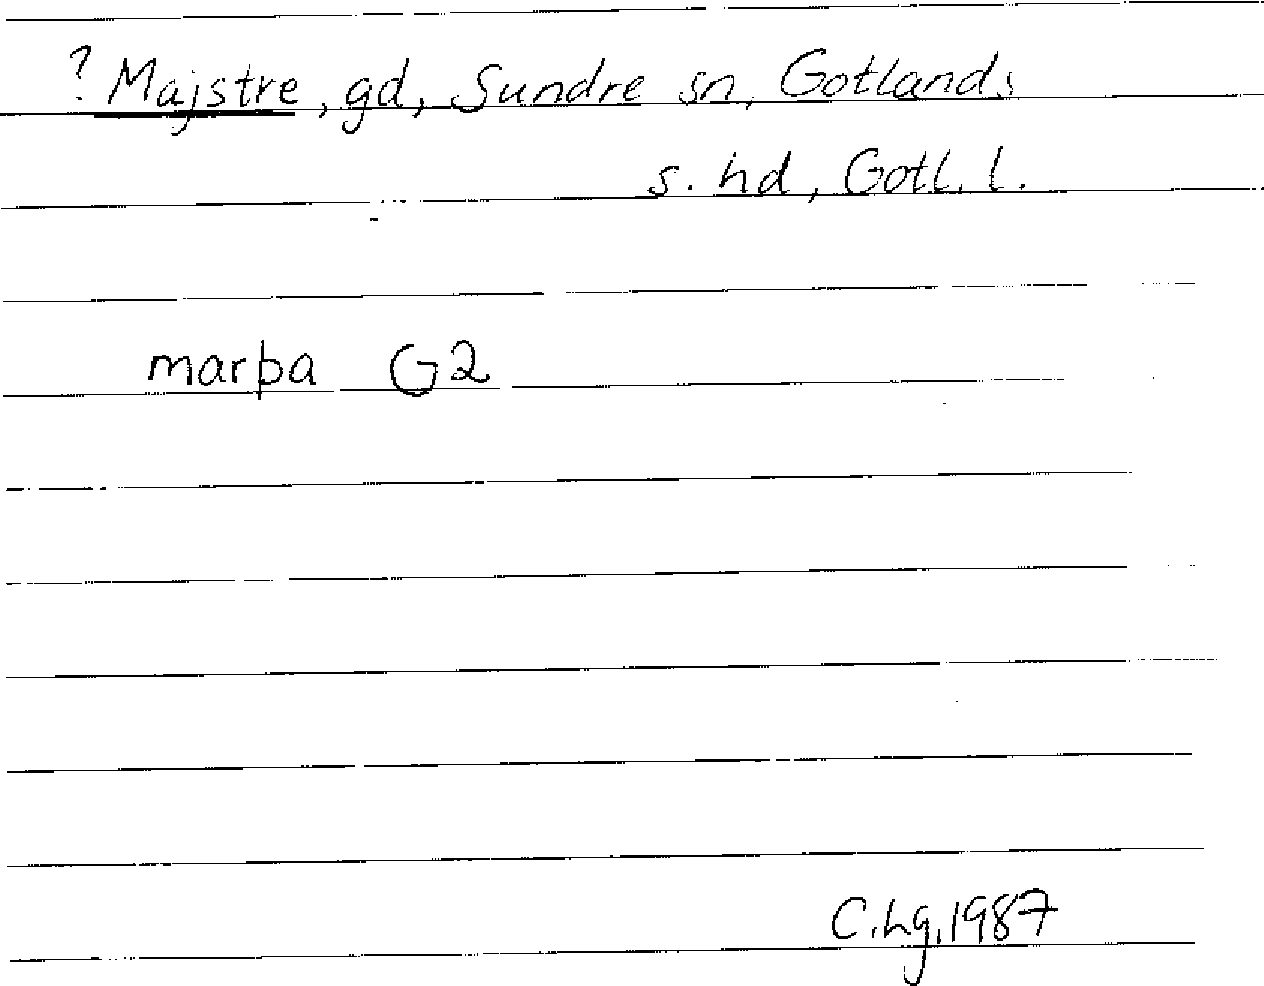 ? Majstre, gd, Sundre sn, Gotlands
s. hd, Gotl. l.
marþa G2
C.Lg.1987